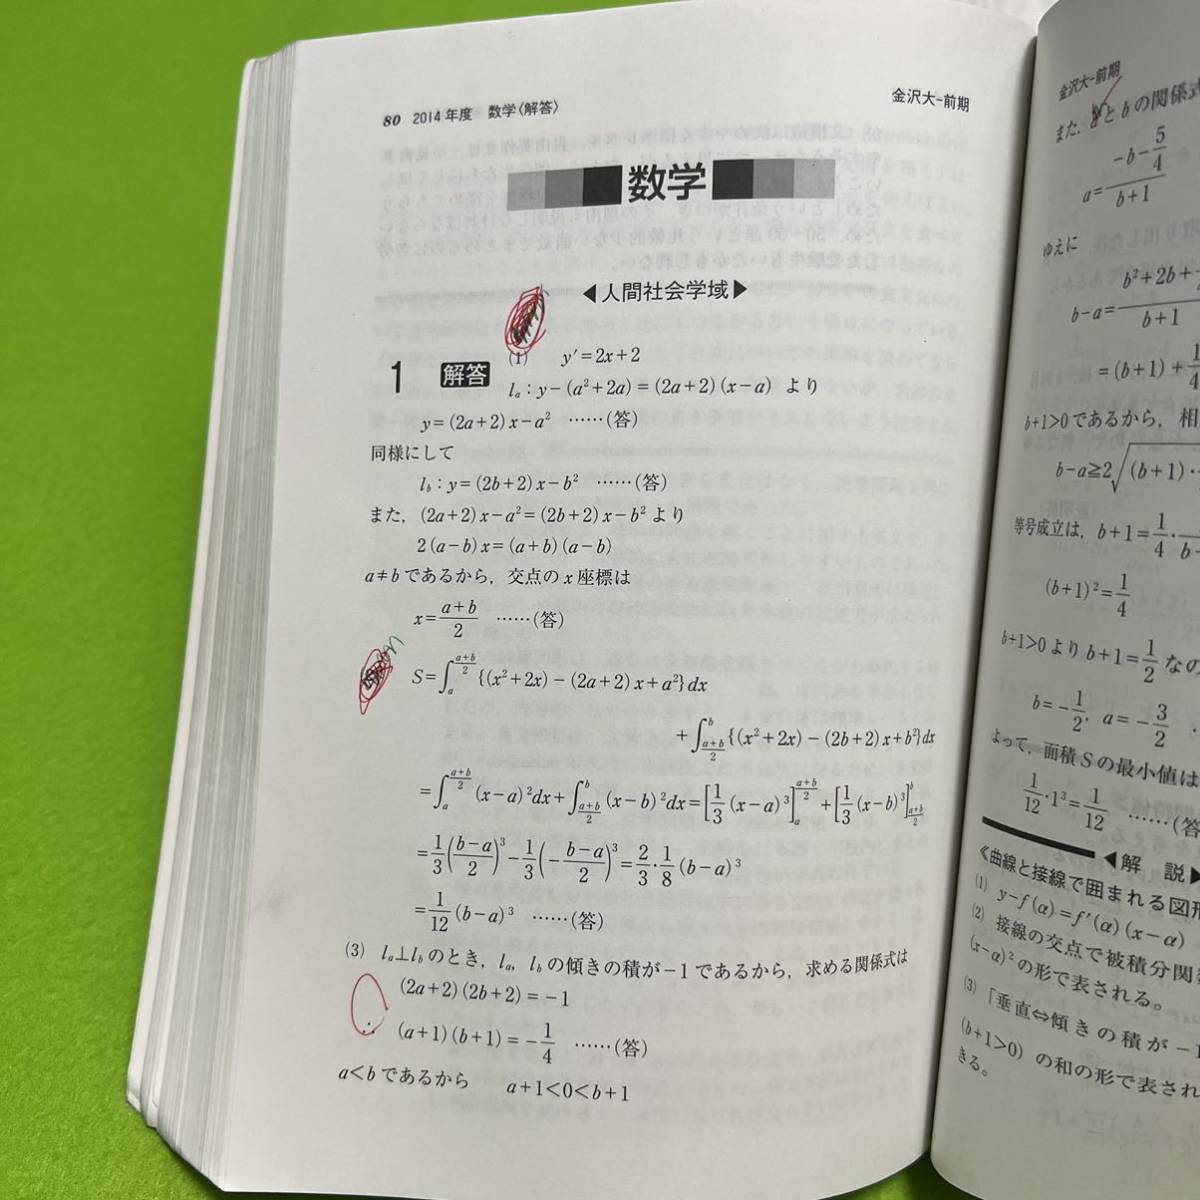 80 2014年度 数学〈解答〉
金沢大-前期
数学
◀人間社会学域▶
1 解答 (1) y′=2x+2
lₐ：y−(a²+2a)=(2a+2)(x−a) より
y=(2a+2)x−a² ……(答)
同様にして
l_b：y=(2b+2)x−b² ……(答)
また，(2a+2)x−a²=(2b+2)x−b²より
2(a−b)x=(a+b)(a−b)
a≠bであるから，交点のx座標は
x=(a+b)/2 ……(答)
S=∫_a^{(a+b)/2}{(x²+2x)−(2a+2)x+a²}dx
+∫_{(a+b)/2}^b{(x²+2x)−(2b+2)x+b²}dx
=∫_a^{(a+b)/2}(x−a)²dx+∫_{(a+b)/2}^b(x−b)²dx=[1/3(x−a)³]_a^{(a+b)/2}+[1/3(x−b)³]_{(a+b)/2}^b
=1/3((b−a)/2)³−1/3(−(b−a)/2)³=2/3·1/8(b−a)³
=1/12(b−a)³ ……(答)
(3) lₐ⊥l_bのとき，lₐ，l_bの傾きの積が−1であるから，求める関係式は
(2a+2)(2b+2)=−1
∴ (a+1)(b+1)=−1/4 ……(答)
a<bであるから a+1<0<b+1
金沢大-前期
また，aとbの関係式
a=(−b−5/4)/(b+1)
ゆえに
b²+2b+
b−a= b+1
=(b+1)+
b+1>0であるから，相
b−a≧2√(b+1)·
等号成立は，b+1=1/4·
(b+1)²=1/4
b+1>0よりb+1=1/2なの
b=−1/2，a=−3/2
よって，面積Sの最小値は
1/12·1³=1/12 ……(答
◀解 説▶
《曲線と接線で囲まれる図形
(1) y−f(α)=f′(α)(x−α)
(2) 接線の交点で被積分関数
(x−α)²の形で表される。
(3) 「垂直⇔傾きの積が−1
(b+1>0)の和の形で表され
きる。